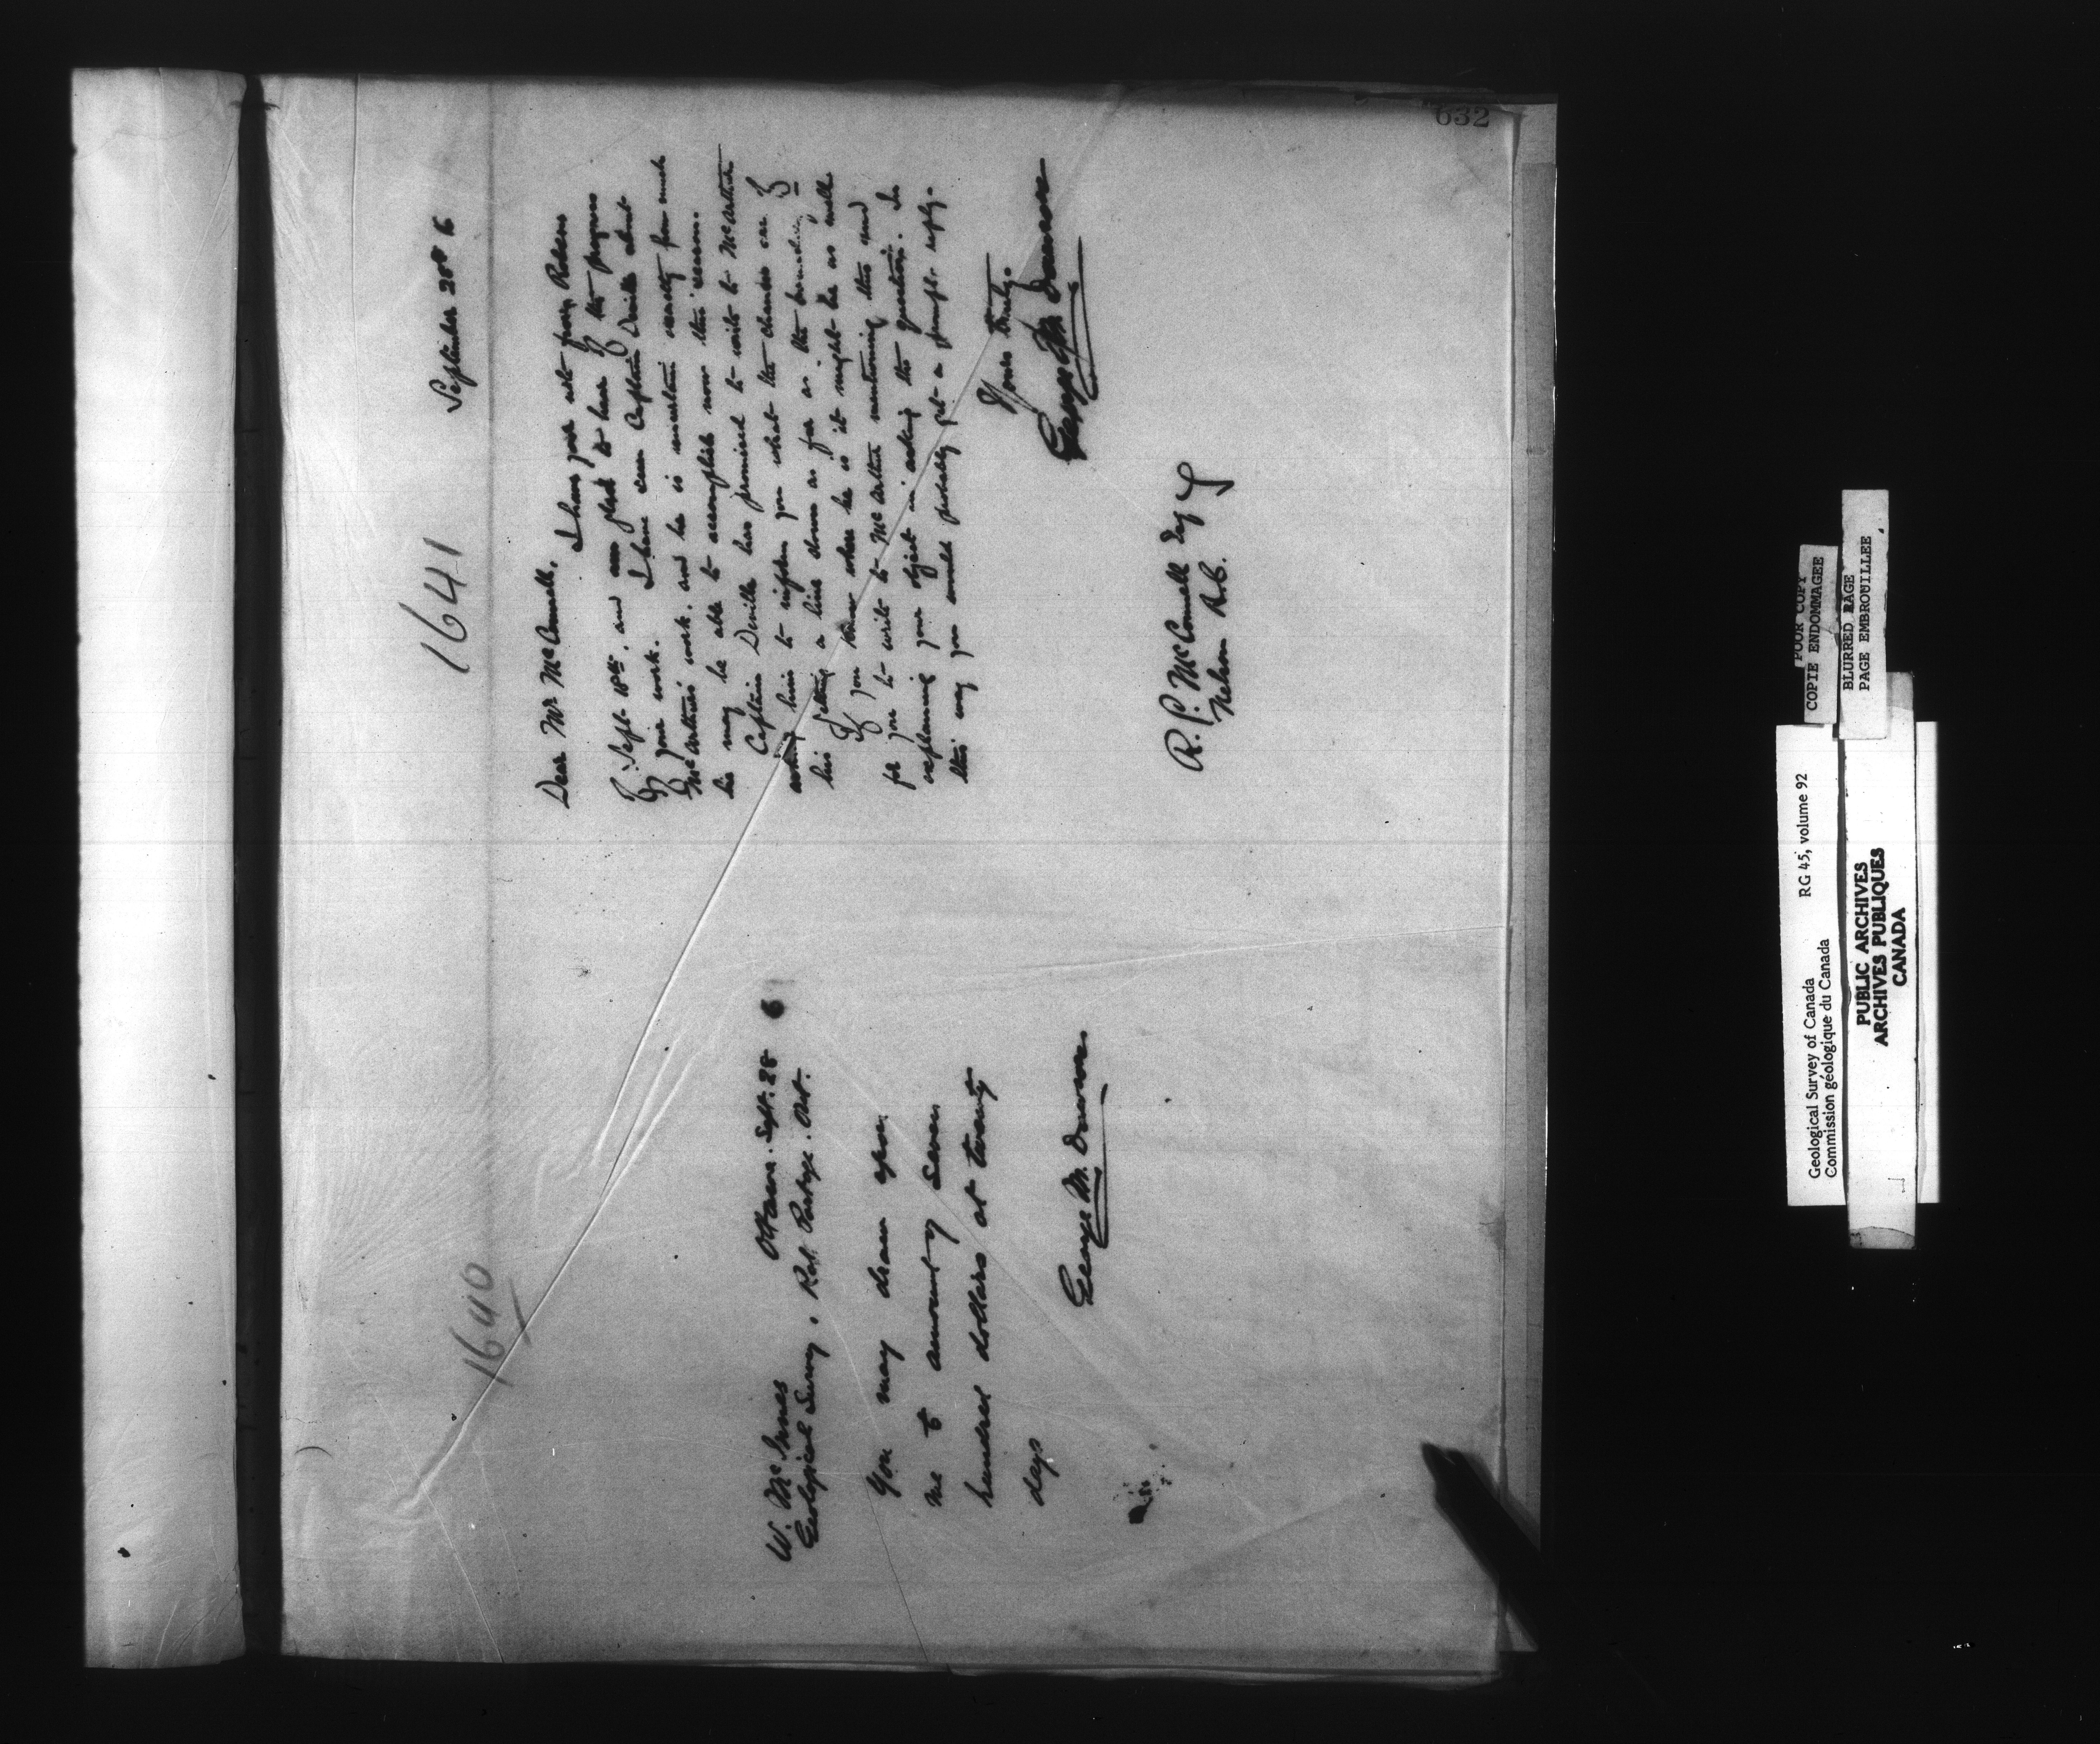 632
1640
Ottawa. Sept. 28 6
W. McInnes
Geological Survey, Rat Portage. Ont.
You may draw upon
me to amount of seven
hundred dollars at twenty
days
George M. Dawson
1641
September 28th 6
Dear Mr McConnell.
I have your note from
of Sept 18th. and am glad to hear of the progress
of your work. I have seen Captain Deville about
McArthur's work. and he is uncertain exactly how much
he may be able to accomplish now this season.
Captain Deville has promised to write to McArthur
asking him to inform you what the chances are of
his getting a line down as far as the
If you know where he is it might be as well
for you to write to McArthur mentioning this and
explaining your object in asking the question. In
this way you would probably get a prompt reply.
Yours truly.
George M. Dawson
R. G. McConnell Esq
Nelson B.C.
POOR COPY
COPIE ENDOMMAGEE
BLURRED PAGE
PAGE EMBROUILLEE
Geological Survey of Canada RG 45, volume 92
Commission géologique du Canada
PUBLIC ARCHIVES
ARCHIVES PUBLIQUES
CANADA